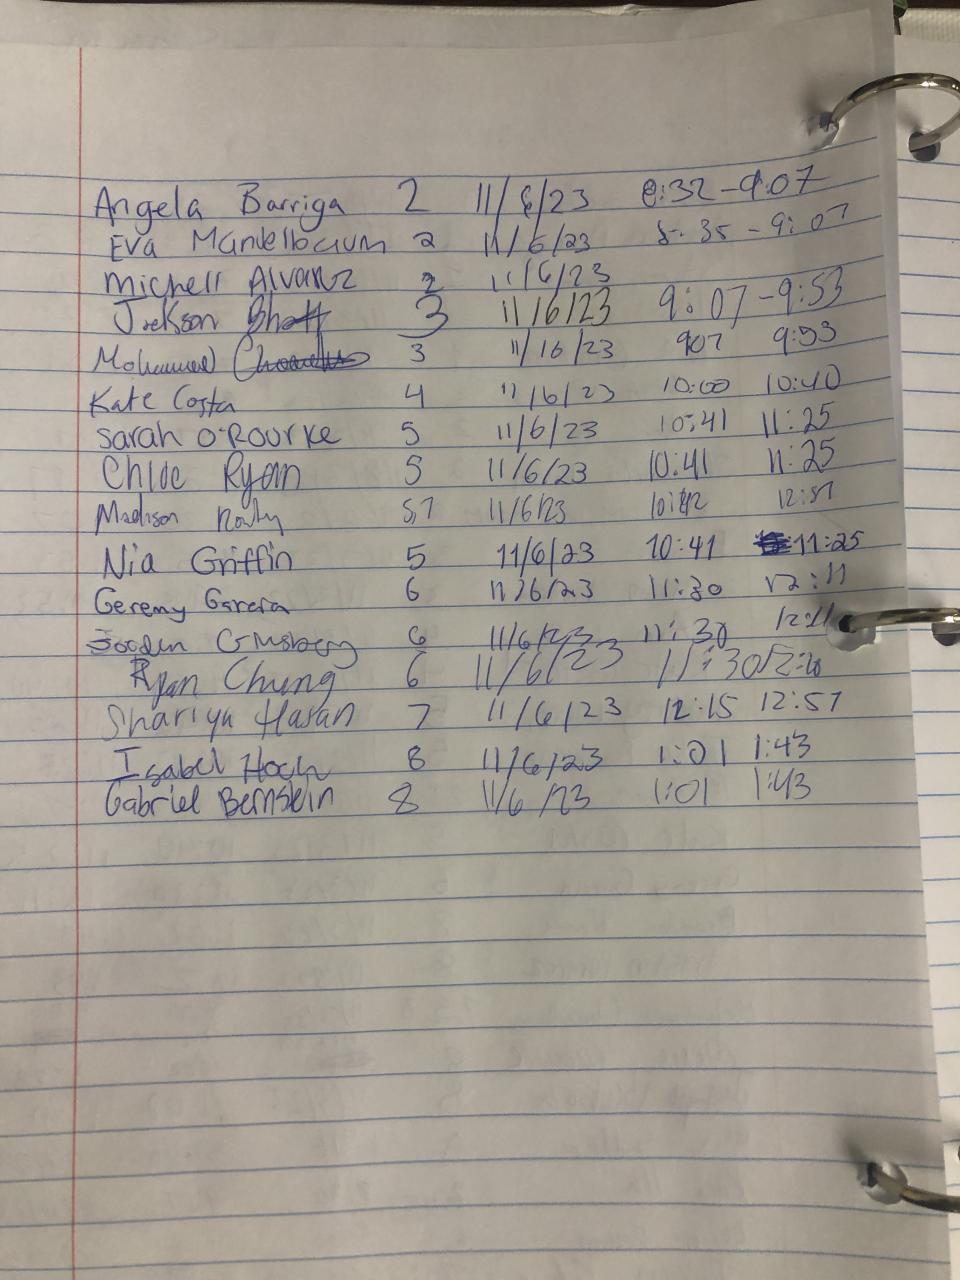 Angela Barriga 2 11/6/23 8:32 - 9:07
Eva Mandelbaum 2 11/6/23 8:35 - 9:07
Michell Alvarez 2 11/6/23
Jackson Bhatt 3 11/6/23 9:07 - 9:53
Mohammed 3 11/16/23 907 9:53
Kate Costa 4 11/6/23 10:00 10:40
Sarah O'Rourke 5 11/6/23 10:41 11:25
Chloe Ryan 5 11/6/23 10:41 11:25
Madison 5,7 11/6/23 10:42 12:57
Nia Griffin 5 11/6/23 10:41 11:25
Geremy Garcia 6 11/6/23 11:30 12:11
6 11/6/23 11:30 12:11
Ryan Chung 6 11/6/23 11:30
Shariya Hasan 7 11/6/23 12:15 12:57
Isabel Hoch 8 11/6/23 1:01 1:43
Gabriel Bernstein 8 11/6/23 1:01 1:43